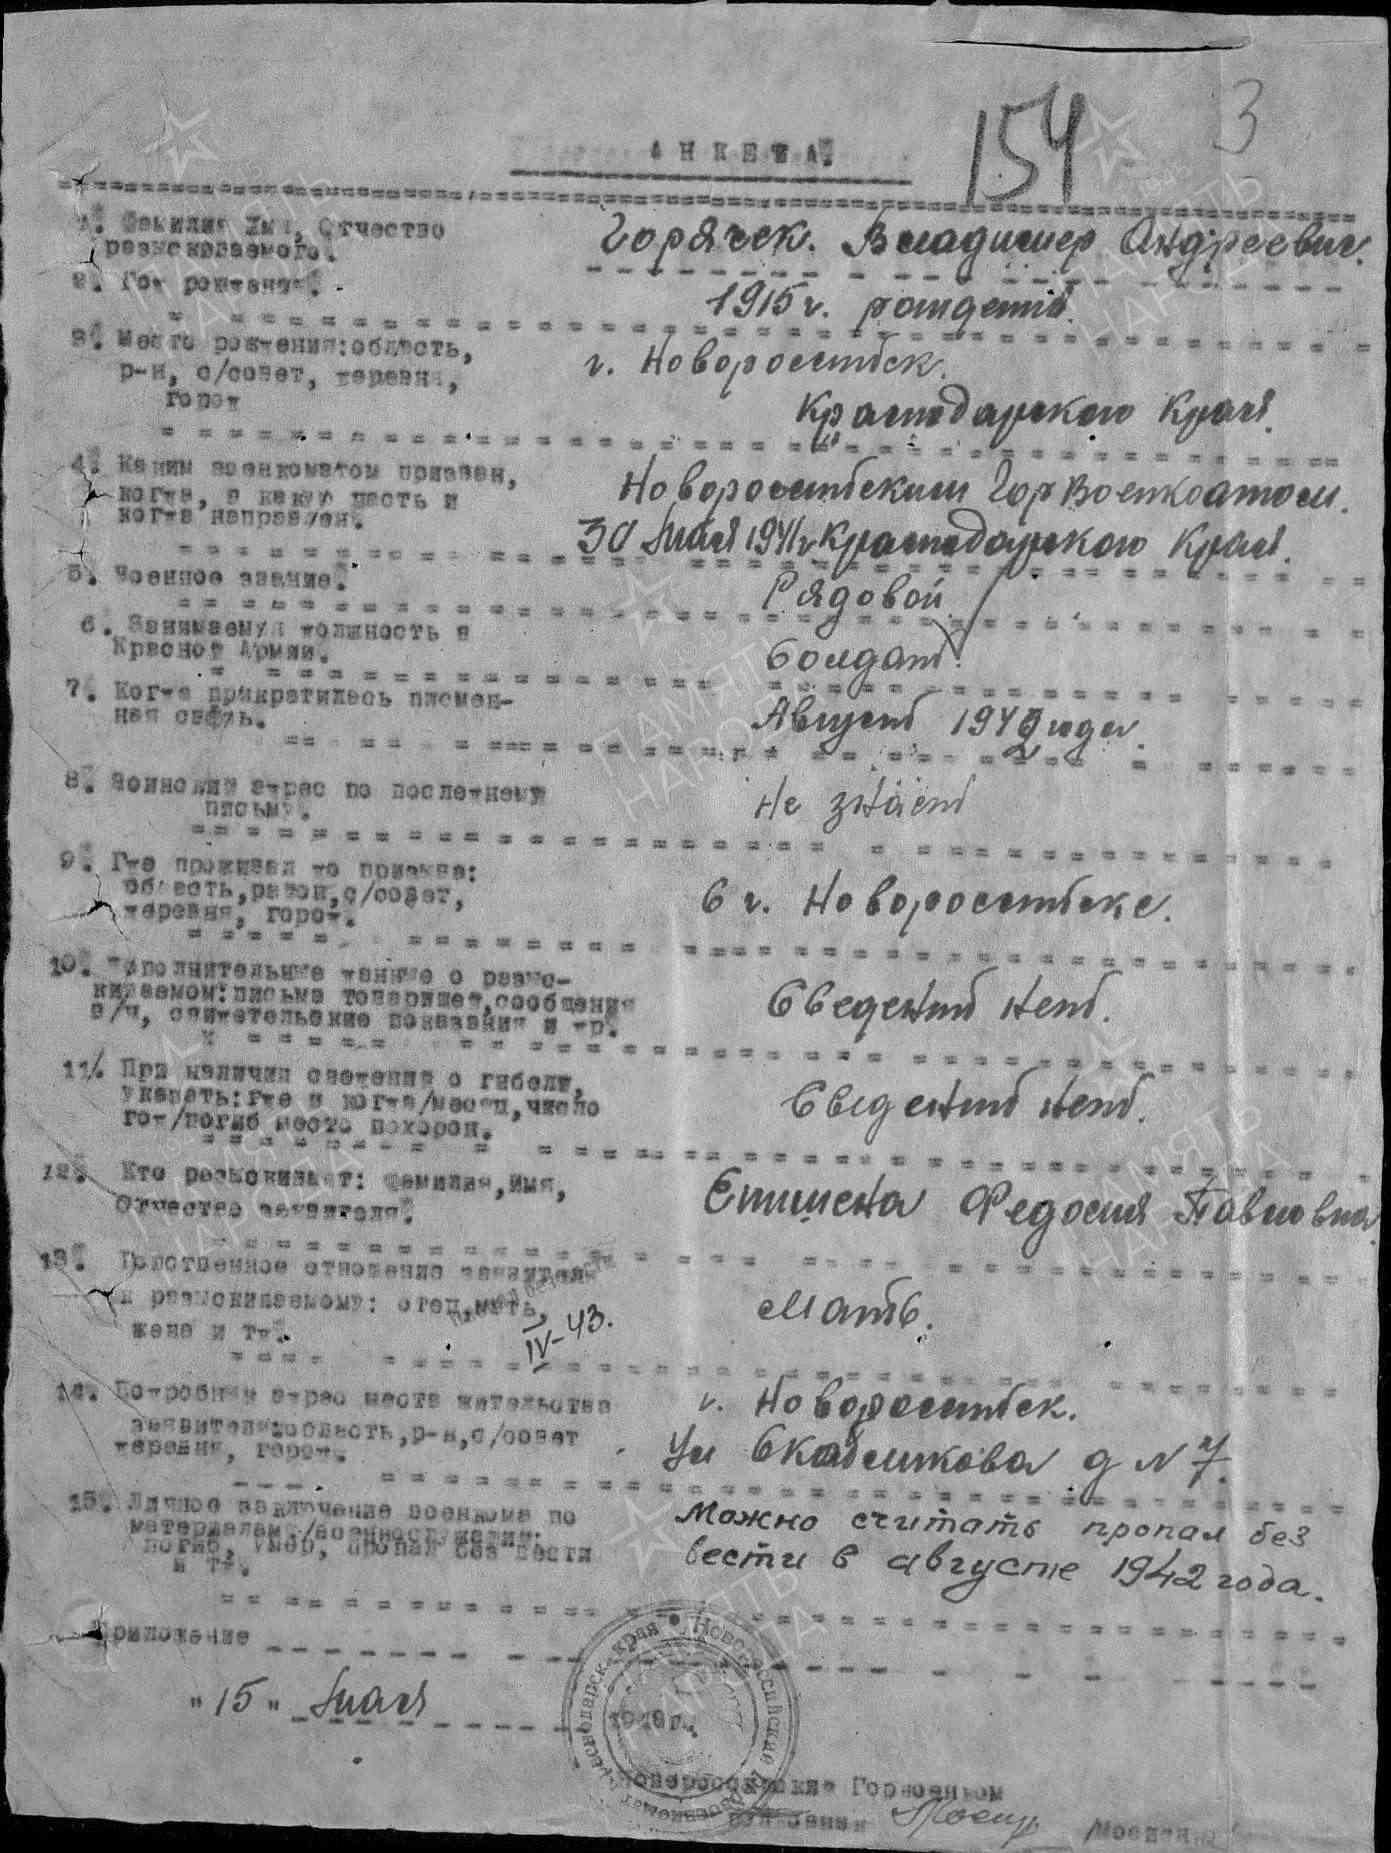 154 3
АНКЕТА.
1. Фамилия Имя, Отчество
разыскиваемого.
Горячек. Владимер Андреевич.
2. Год рождения.
1915 г. рождения.
3. Место рождения: область,
р-н, с/совет, деревня,
город
г. Новороссийск.
Краснодарского Края.
4. Каким военкоматом призван,
когда, в какую часть и
когда направлен.
Новороссийским Гор Военкоатом.
30 мая 1941 г Краснодарского Края.
5. Военное звание.
Рядовой
6. Занимаемая должность в
Красной Армии.
Солдат.
7. Когда прикратилась писмен-
ная связь.
Август 1942 года.
8. Воинский адрес по последнему
письму.
Не знает
9. Где проживал до призыва:
область, район, с/совет,
деревня, город.
в г. Новороссийске.
10. Дополнительные данные о разыс-
киваемом: письма товарищей, сообщения
в/ч, свидетельские показания и др.
Сведений нет.
11/. При наличии сведения о гибели,
указать: где и когда/месяц, число
год/погиб место похорон.
Сведений нет.
12. Кто разыскивает: фамилия, имя,
Отчество заявителя.
Федосия Павловна.
13. Родственное отношение заявителя
к разыскиваемому: отец, мать,
жена и тд.
Мать.
IV-43.
14. Подробный адрес места жительства
заявителя: область, р-н, с/совет
деревня, город.
г. Новороссийск.
Ул д N 7.
15. Личное заключение военкома по
материалам /военнослужащий:
погиб, умер, пропал без вести
и тд.
Можно считать пропал без
вести в августе 1942 года.
Приложение
"15" мая 194 г.
Новороссийский Горвоенком